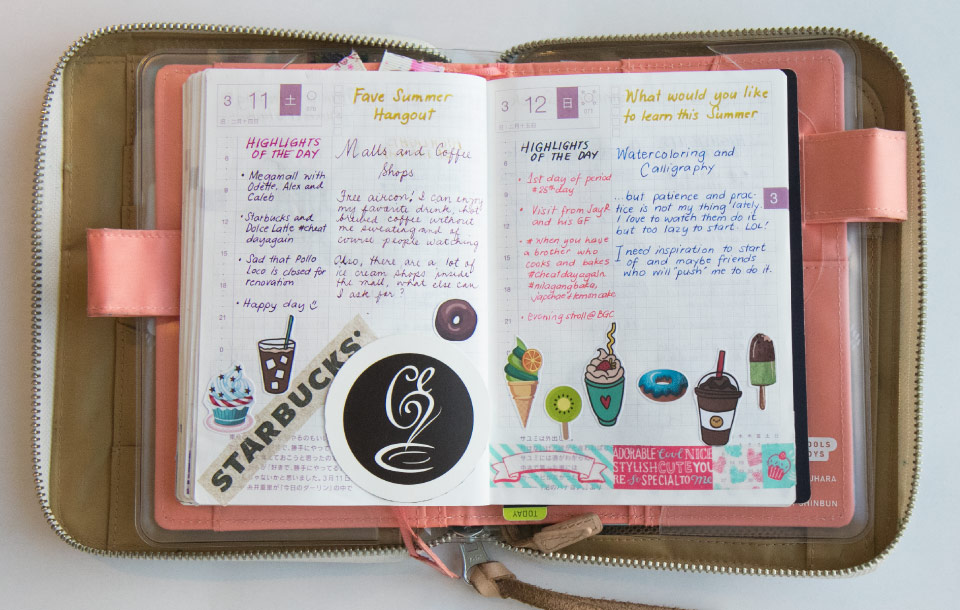 3 11 土
Fave Summer
Hangout
HIGHLIGHTS
OF THE DAY
• Megamall with
Odette, Alex and
Caleb
• Starbucks and
Dolce Latte #cheat
dayagain
• Sad that Pollo
Loco is closed for
renovation
• Happy day
Malls and Coffee
Shops
Free aircon! I can enjoy
my favorite drink, hot
brewed coffee without
me sweating and of
course people watching
Also, there are a lot of
ice cream shops inside
the mall, what else can
I ask for?
STARBUCKS
3 12 日
What would you like
to learn this Summer
HIGHLIGHTS
OF THE DAY
• 1st day of period
#28th day
• Visit from JayR
and his GF
• # When you have
a brother who
cooks and bakes
#cheatdayagain
#nilagangbaka,
japcheo & lemoncake
• evening stroll @BGC
Watercoloring and
Calligraphy
.. but patience and prac-
tice is not my thing lately.
I love to watch them do it
but too lazy to start. LOL!
I need inspiration to start
of and maybe friends
who will "push" me to do it.
3
サユミは外出し
ADORABLE Cool NICE
STYLISH CUTE YOU
RE So SPECIAL TO me
TODAY
UHARA
SHINBUN